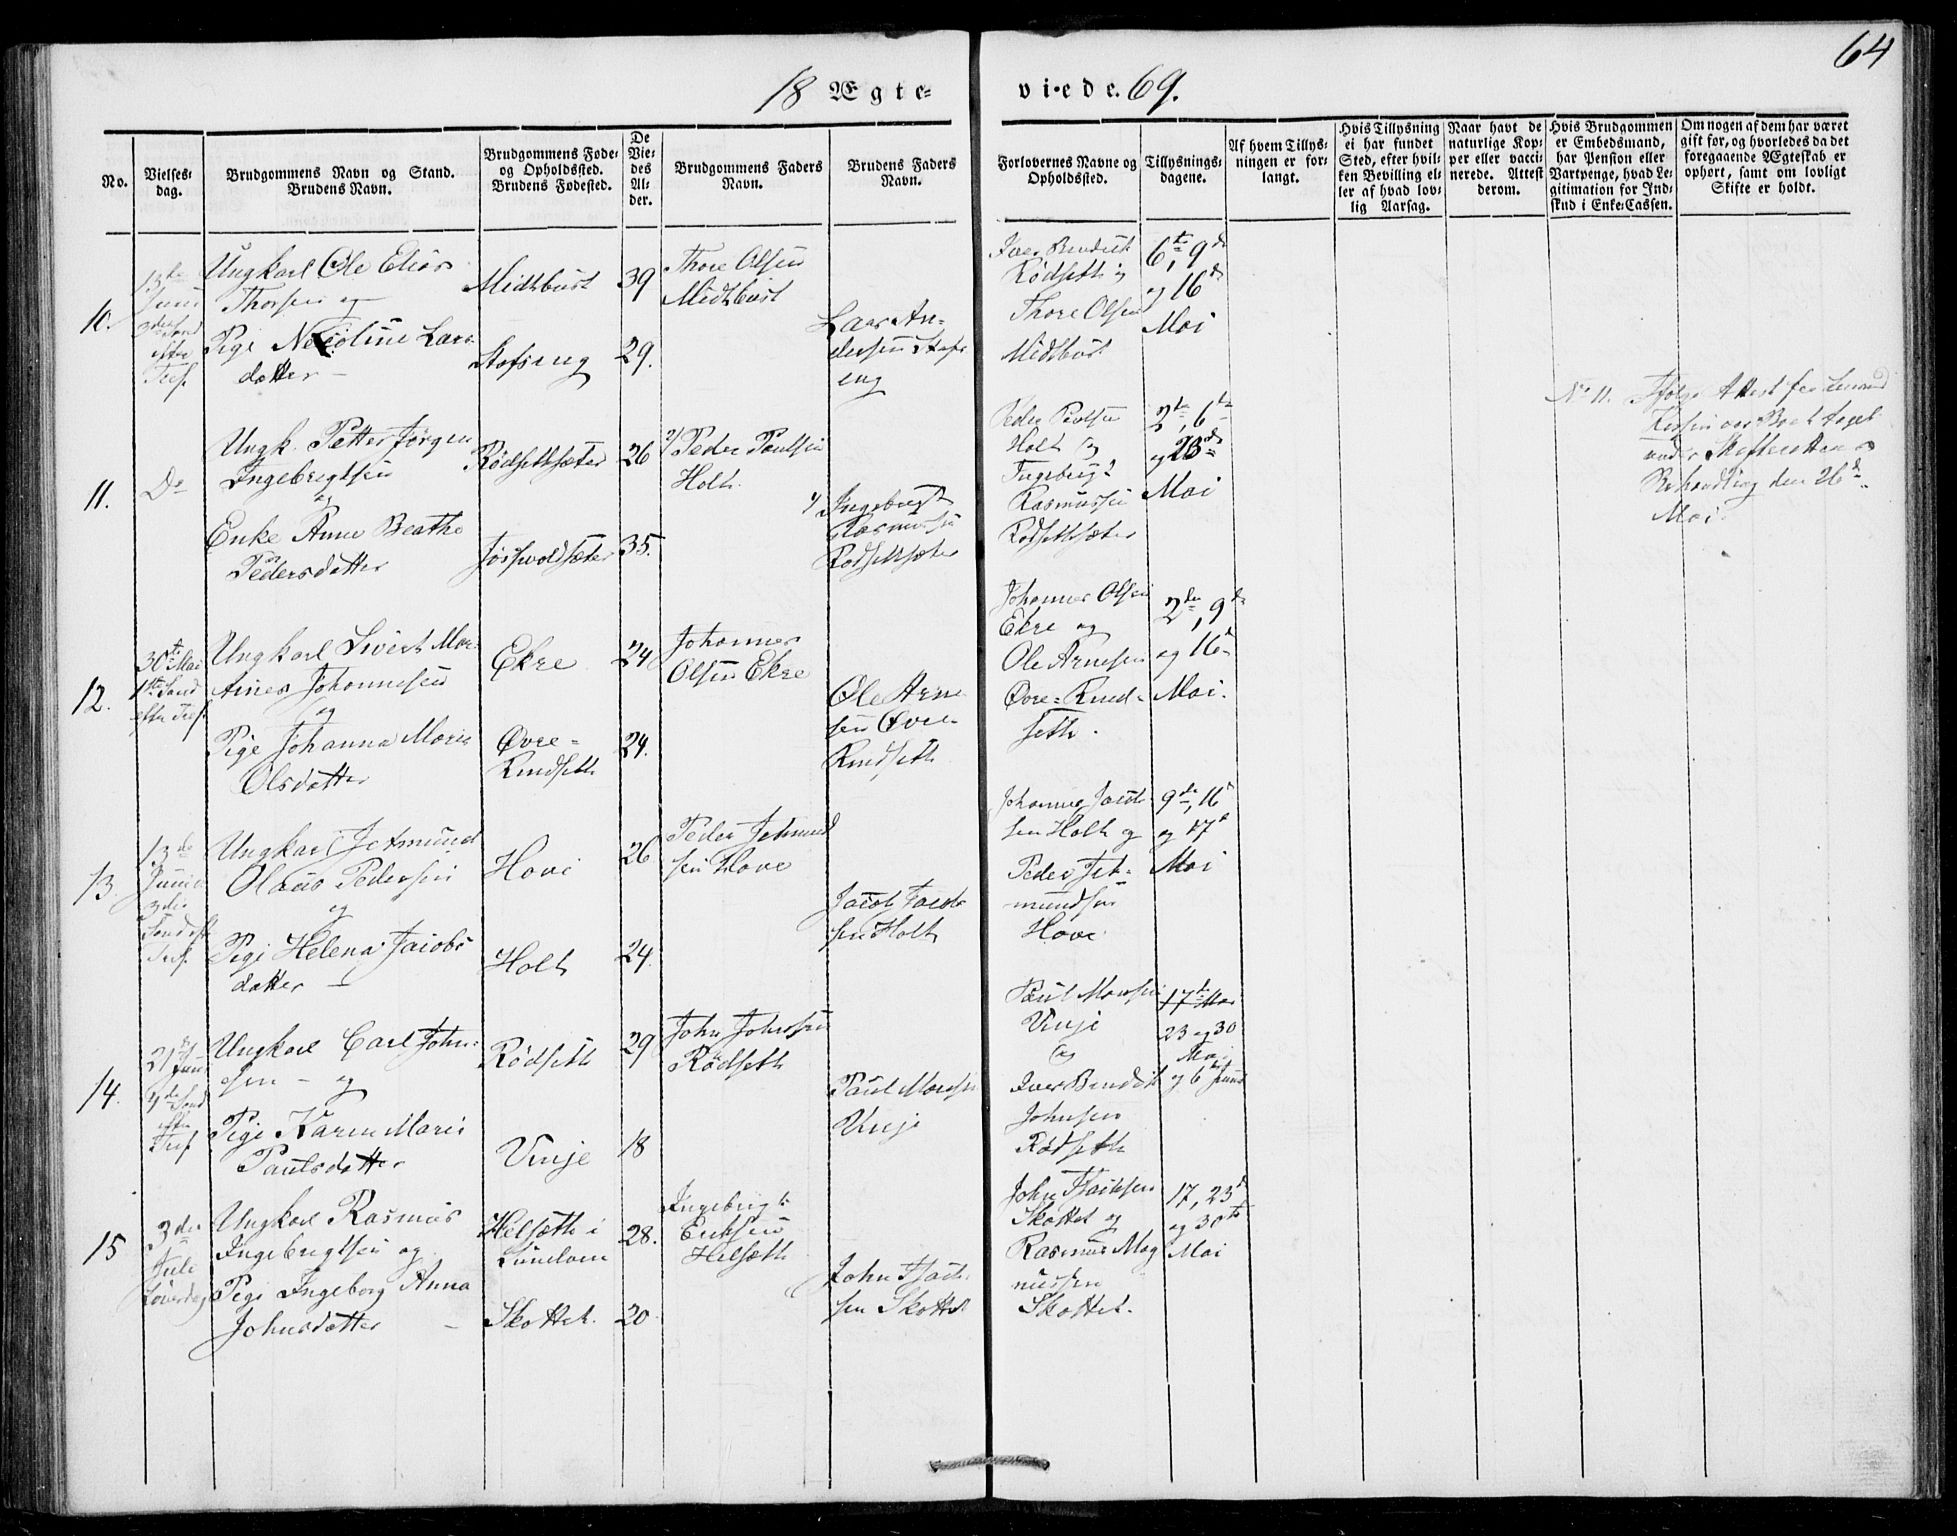 64
18 Ægte-
viede. 69.
No.
Vielses-
dag.
Brudgommens Navn og Stand.
Brudens Navn.
Brudgommens Føde-
og Opholdssted.
Brudens Fødested.
De
Vie-
des
Al-
der.
Brudgommens Faders
Navn.
Brudens Faders
Navn.
Forlovernes Navne og
Opholdssted.
Tillysnings-
dagene.
Af hvem Tillys-
ningen er for-
langt.
Hvis Tillysning
ei har fundet
Sted, efter hvil-
ken Bevilling el-
ler af hvad lov-
lig Aarsag.
Naar havt de
naturlige Kop-
per eller vacci-
nerede. Attest
derom.
Hvis Brudgommen
er Embedsmand,
har Pension eller
Vartpenge, hvad Le-
gitimation for Ind-
skud i Enke-Cassen.
Om nogen af dem har været
gift før, og hvorledes da det
foregaaende Ægteskab er
ophørt, samt om lovligt
Skifte er holdt.
10.
13de
Juni
3die Sønd
efter
Tref.
Ungkarl Ole Elias
Thorsen og
Pige Nicoline Lars
datter
Midtbust
39
Thore Olsen
Midtbust
29.
Lars An-
dersen
eng
Iver Bendict
Rødseth og
Thore Olsen
Midtbust
6te, 9de
og 16de
Mai
11.
Do
Ungk. Petter Jørgen
Ingebrigtsen
og
Enke Anne Beathe
Pedersdatter
Rødsethsæter
26
35.
2/ Peder Paulsen
Holt.
1/ Ingebrigt
Rasmussen
Rødsethsæter
Peder Paulsen
Holt og
Ingebrigt
Rasmussen
Rødsethsæter
2de, 6te
og 23de
Mai
No 11. Ifølge Attest fra
Boet taget
under Skifterettens
Behandling den 26de
Mai.
12.
30te Mai
1ste Sønd
efter Tref.
Ungkarl Sivert Mar-
Johannesen
og
Pige Johanna Marie
Olsdatter
Ekre
24
Øvre-
Knudseth
24.
Johannes
Olsen Ekre
Ole Arne
sen Øvre-
Knudseth
Johannes Olsen
Ekre og
Ole Arnesen
Øvre-Knud-
seth.
2den, 9de
og 16de
Mai.
13
13de
Juni
3die
Sønd eft
Tref.
Ungkarl Jetmund
Olaus Pedersen
og
Pige Helena Jacobs
datter
Hove
26
Holt
24.
Peder Jetmund
sen Hove
Jacob Jacob
sen Holt
Johannes Jacob-
sen Holt og
Peder Jet-
mundsen
Hove
9de, 16de
og 17de
Mai
14.
21de Juni
Sønd
efter
Tref
Ungkarl Carl John-
sen og
Pige Karen Marie
Paulsdatter
Rødseth
29
Vinje
18
John Johnsen
Rødseth
Paul Monsen
Vinje
Paul Monsen
Vinje
og
Iver Bendict
Johnsen
Rødseth
17de Mai
23 og 30
Mai
og 6te Juni
15
3die
Jule
Løverdag
Ungkarl Rasmus
Ingebrigtsen og
Pige Ingeborg Anna
Johnsdatter
Helsæth i
28.
Skottet.
20
Ingebrigt
Eriksen
Helsæth
John
sen Skottet
John
Skottet og
Rasmus Mag
nussen
Skottet.
17, 23de
og 30te
Mai